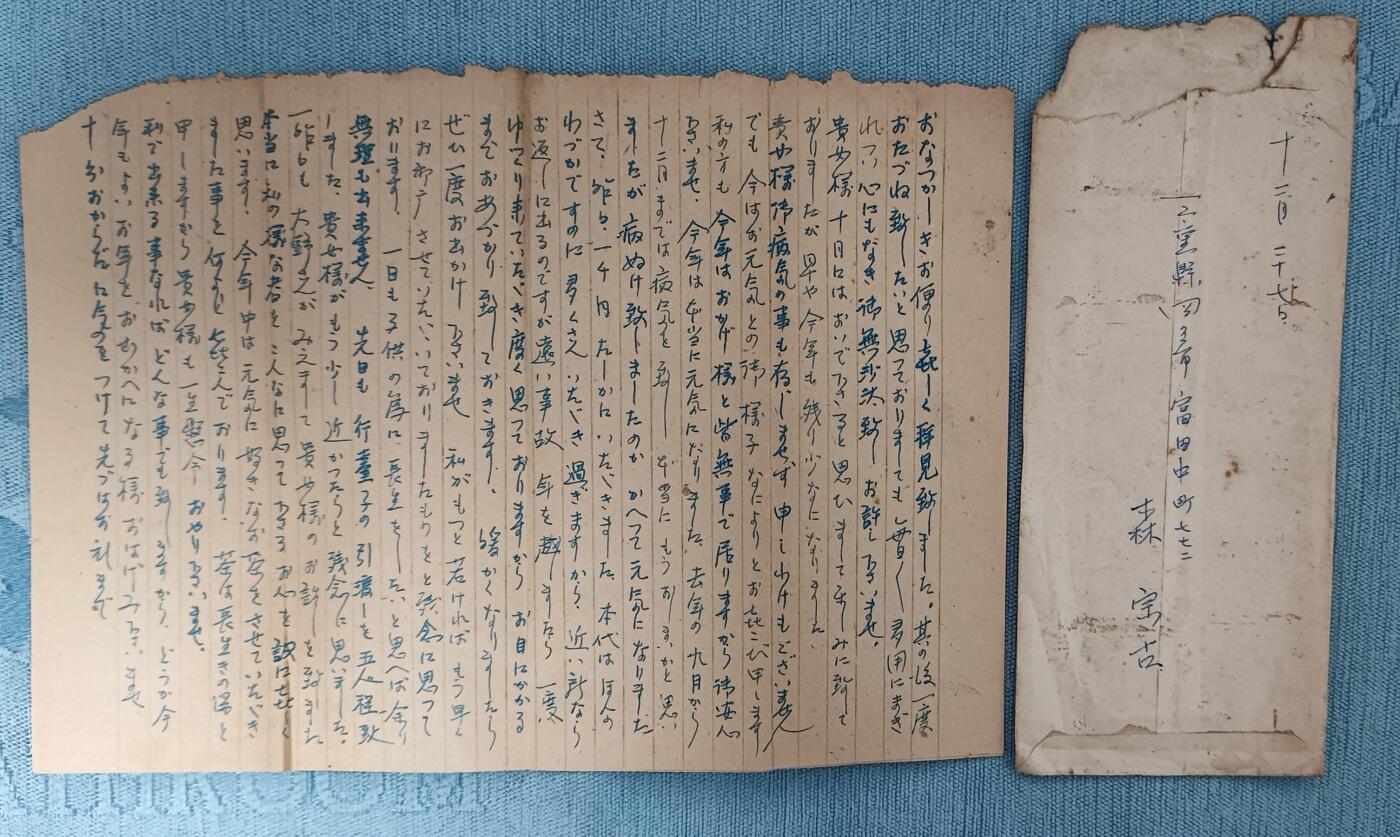 おなつかしきお便り嬉しく拝見致しました。其の後一度
おたづね致したいと思っておりましても毎日々多用にまぎ
れつい心にもなき御無沙汰致しお許し下さいませ。
貴女様十月にはおいで下さると思ひまして楽しみに致して
おりましたが早や今年も残り少なになりました
貴女様御病気の事も存じませず申しわけもございません
でも今はお元気との御様子なによりとお喜び申します
私の方も今年はおかげ様と皆無事で居りますから御安心
下さいませ、今年は本当に元気になりました、去年の九月から
十二月までは病気を致し本当にもうおしまいかと思い
ましたが病ぬけ致しましたのかかへって元気になりました
さて、昨日、一千円たしかにいただきました、本代はほんの
わづかですのに多くさんいただき過ぎますから、近い所なら
お返しに出るのですが遠い事故年を越しましたら一度
ゆっくり来ていただき度く思っておりますからお目にかかる
までおあづかり致しておきます、暖かくなりましたら
ぜひ一度お出かけ下さいませ私がもっと若ければもう早く
にお邪魔させていただいておりましたものをと残念に思って
おります、一日も子供の為に長生をしたいと思へば余り
無理も出来ません、先日も行台子の引渡しを五人程致
しました、貴女様がもう少し近かったらと残念に思いました、
一昨日も大野さんがみえまして貴女様のお話しを致しました
本当に私の様な者をこんなに思って下さるお心を誠に嬉しく
思います、今年中は元気に好きなお茶をさせていただき
ました事を何よりと喜んでおります、茶は長生きの薬と
申しますから貴女様も一生懸命おやり下さいませ、
私で出来る事なればどんな事でも致しますから、どうか今
年もよいお年をおむかへになる様おはげみ下さいませ
十分おからだに気をつけて先づはお礼まで
十二月二十七日
三重縣四日市市富田中町七七二
森 宗吉